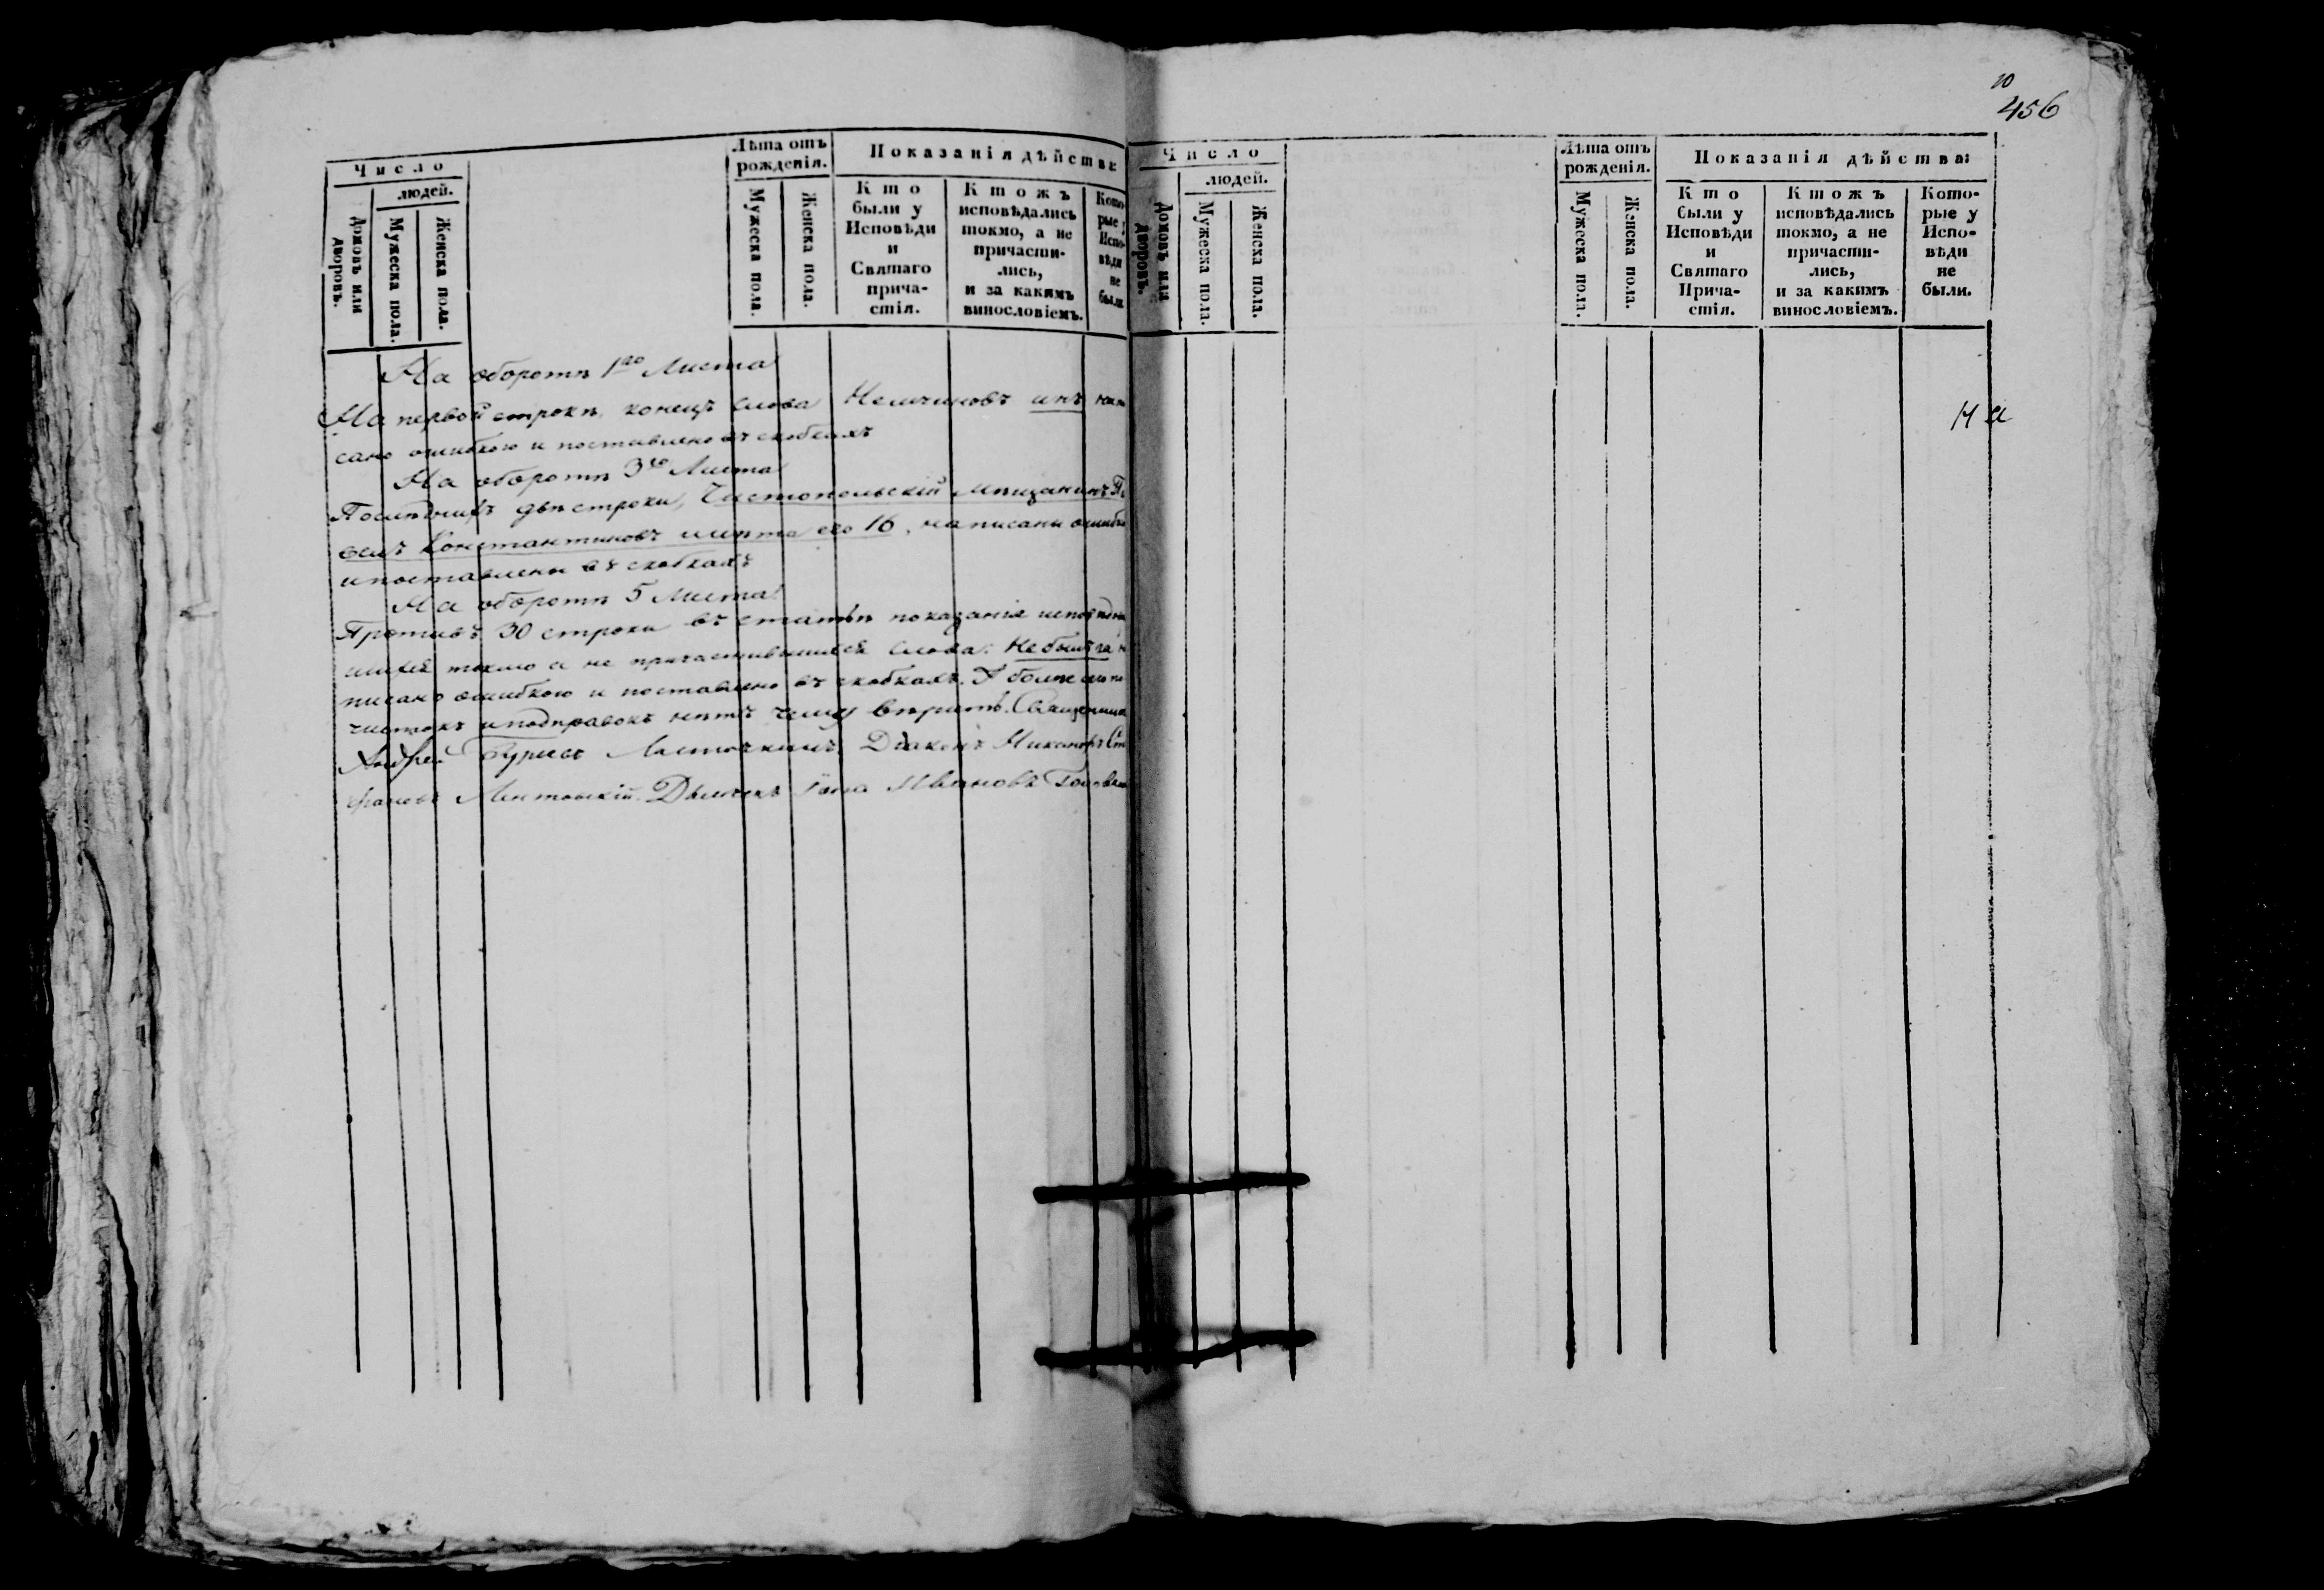 Число
людей.
Домовъ или дворовъ.
Мужеска пола.
Женска пола.
Лѣта отъ рожденія.
Мужеска пола.
Женска пола.
Показанія дѣйства:
Кто
были у
Исповѣди
и
Святаго
прича-
стія.
Ктожъ
исповѣдались
токмо, а не
причасти-
лись,
и за какимъ
винословіемъ.
Кото-
рые у
Испо-
вѣди
не
были
На оборотѣ 1го Листа
На первой строкѣ, конецъ слова Немчиновъ инъ напи
сано ошибкою и поставлено въ скобкахъ
На оборотѣ 3го Листа
Послѣднихъ двѣ строки, Чистопольскій мѣщанинъ
Константиновъ лѣта его 16, написаны ошибк
и поставлены въ скобкахъ
На оборотѣ 5 Листа
Противъ 30 строки въ статьѣ показанія исповѣдав
шихся токмо а не причастившихся слова: не былъ на
писано ошибкою и поставлено въ скобкахъ. А болѣе по
чистокъ и подправокъ нѣтъ чему вѣрить. Священникъ
Андрей Ласточкинъ Діаконъ Никаноръ
Дьячекъ Ивановъ
10
456
Число
людей.
Домовъ или дворовъ.
Мужеска пола.
Женска пола.
Лѣта отъ рожденія.
Мужеска пола.
Женска пола.
Показанія дѣйства:
Кто
были у
Исповѣди
и
Святаго
Прича-
стія.
Ктожъ
исповѣдались
токмо, а не
причасти-
лись,
и за какимъ
винословіемъ.
Кото-
рые у
Испо-
вѣди
не
были.
На